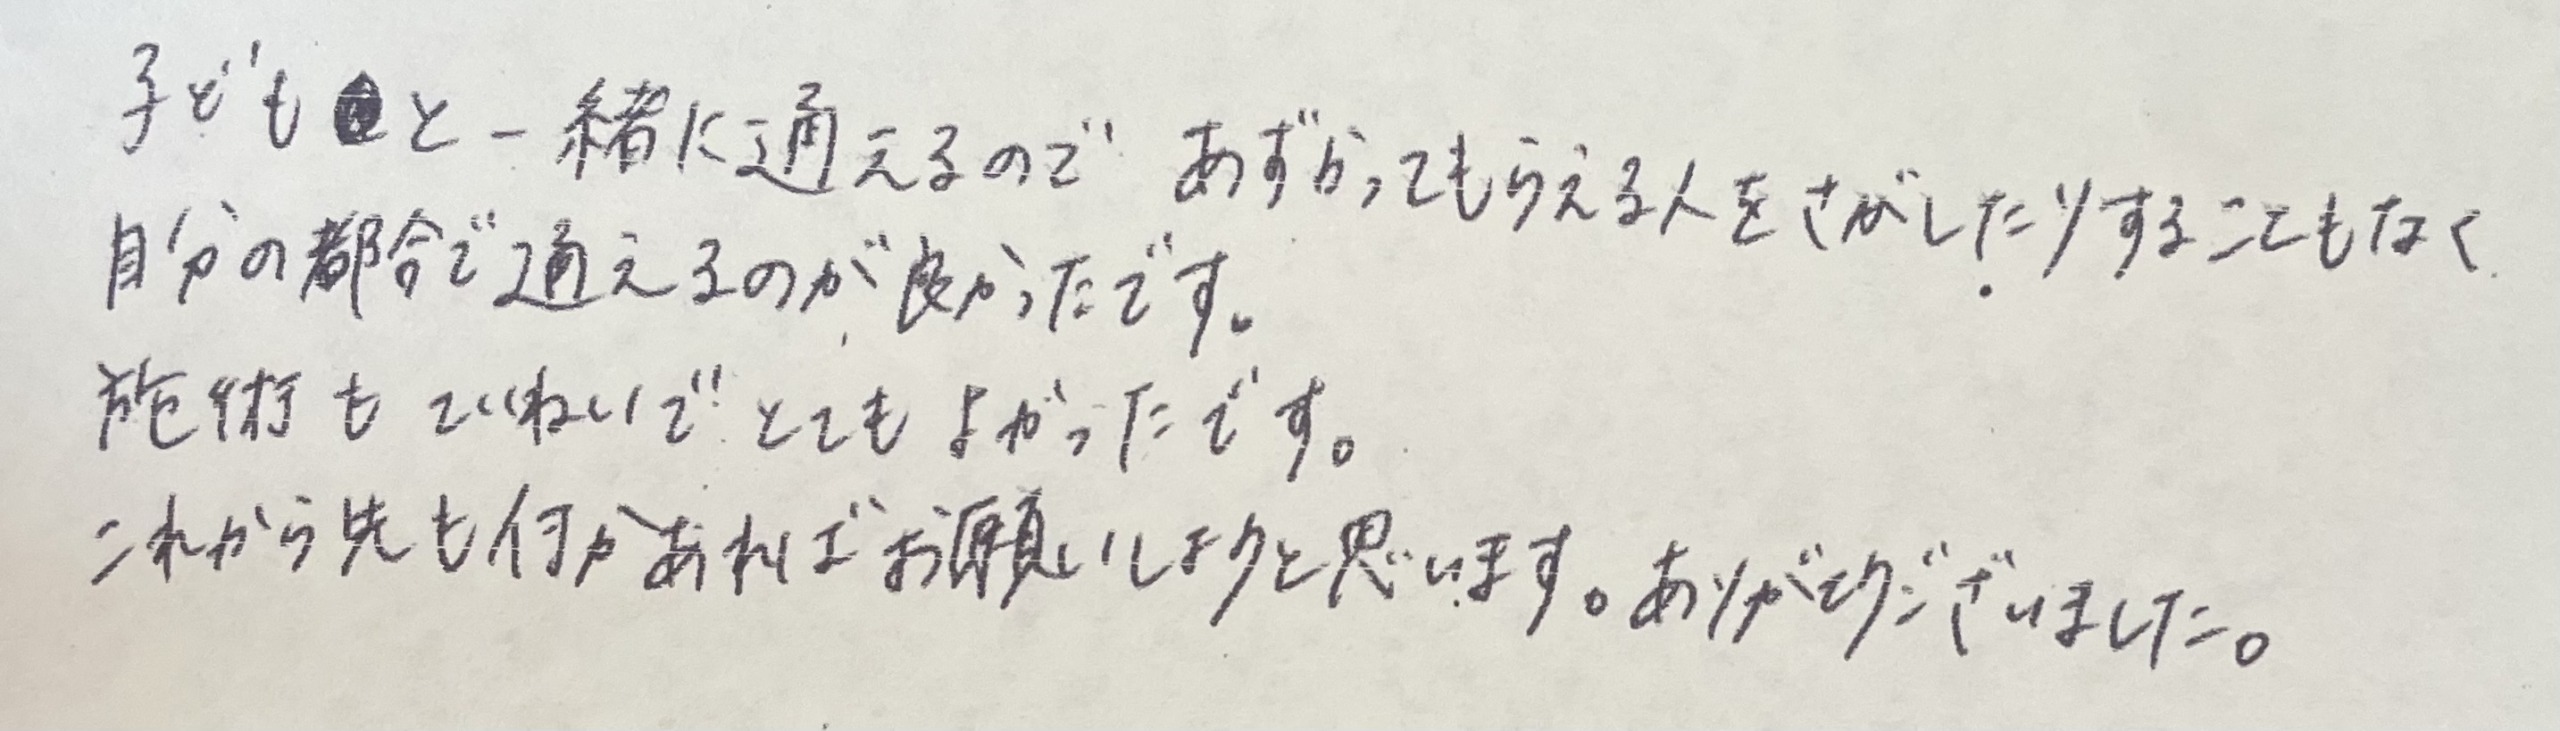 子どもと一緒に通えるので あずかってもらえる人をさがしたりすることもなく
自分の都合で通えるのが良かったです。
施術もていねいでとてもよかったです。
これから先も何かあればお願いしようと思います。ありがとうございました。